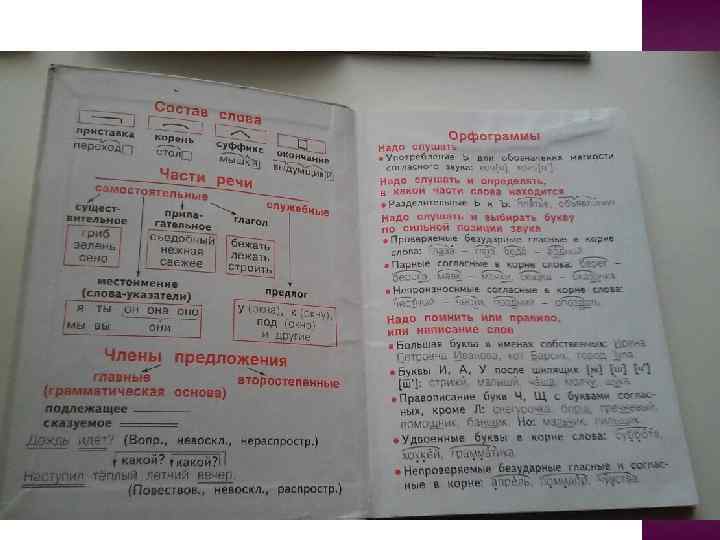 Состав слова
приставка корень суффикс окончание
переход стол мышка выдумщик
Части речи
самостоятельные служебные
сущест-
вительное
прила-
гательное
глагол
гриб
зелень
сено
съедобный
нежная
свежее
бежать
лежать
строить
местоимение
(слова-указатели)
предлог
я ты он она оно
мы вы они
у (окна), к (окну),
под (окно)
и другие
Члены предложения
главные второстепенные
(грамматическая основа)
подлежащее
сказуемое
Дождь идёт? (Вопр., невоскл., нераспростр.)
какой? какой?
Наступил тёплый летний вечер.
(Повествов., невоскл., распростр.)
Орфограммы
Надо слушать
Употребление Ь для обозначения мягкости
согласного звука:
Надо слушать и определять,
в какой части слова находится
Разделительные Ь и Ъ: платье, объявление
Надо слушать и выбирать букву
по сильной позиции звука
Проверяемые безударные гласные в корне
слова: глаза –
Парные согласные в корне слова: берег –
Непроизносимые согласные в корне слова:
Надо помнить или правило,
или написание слов
Большая буквы в именах собственных: Ирина
Петровна Иванова, кот Барсик, город Тула.
Буквы И, А, У после шипящих [ж] [ш] [ч']
[щ']: стрижи, малыши, чаща, молчу, щука.
Правописание букв Ч, Щ с буквами соглас-
ных, кроме Л: снегурочка, борщ, гречневый,
помощник, банщик. Но: мальчик, пильщик.
Удвоенные буквы в корне слова: суббота,
хоккей, грамматика.
Непроверяемые безударные гласные и соглас-
ные в корне: апрель, чувства.